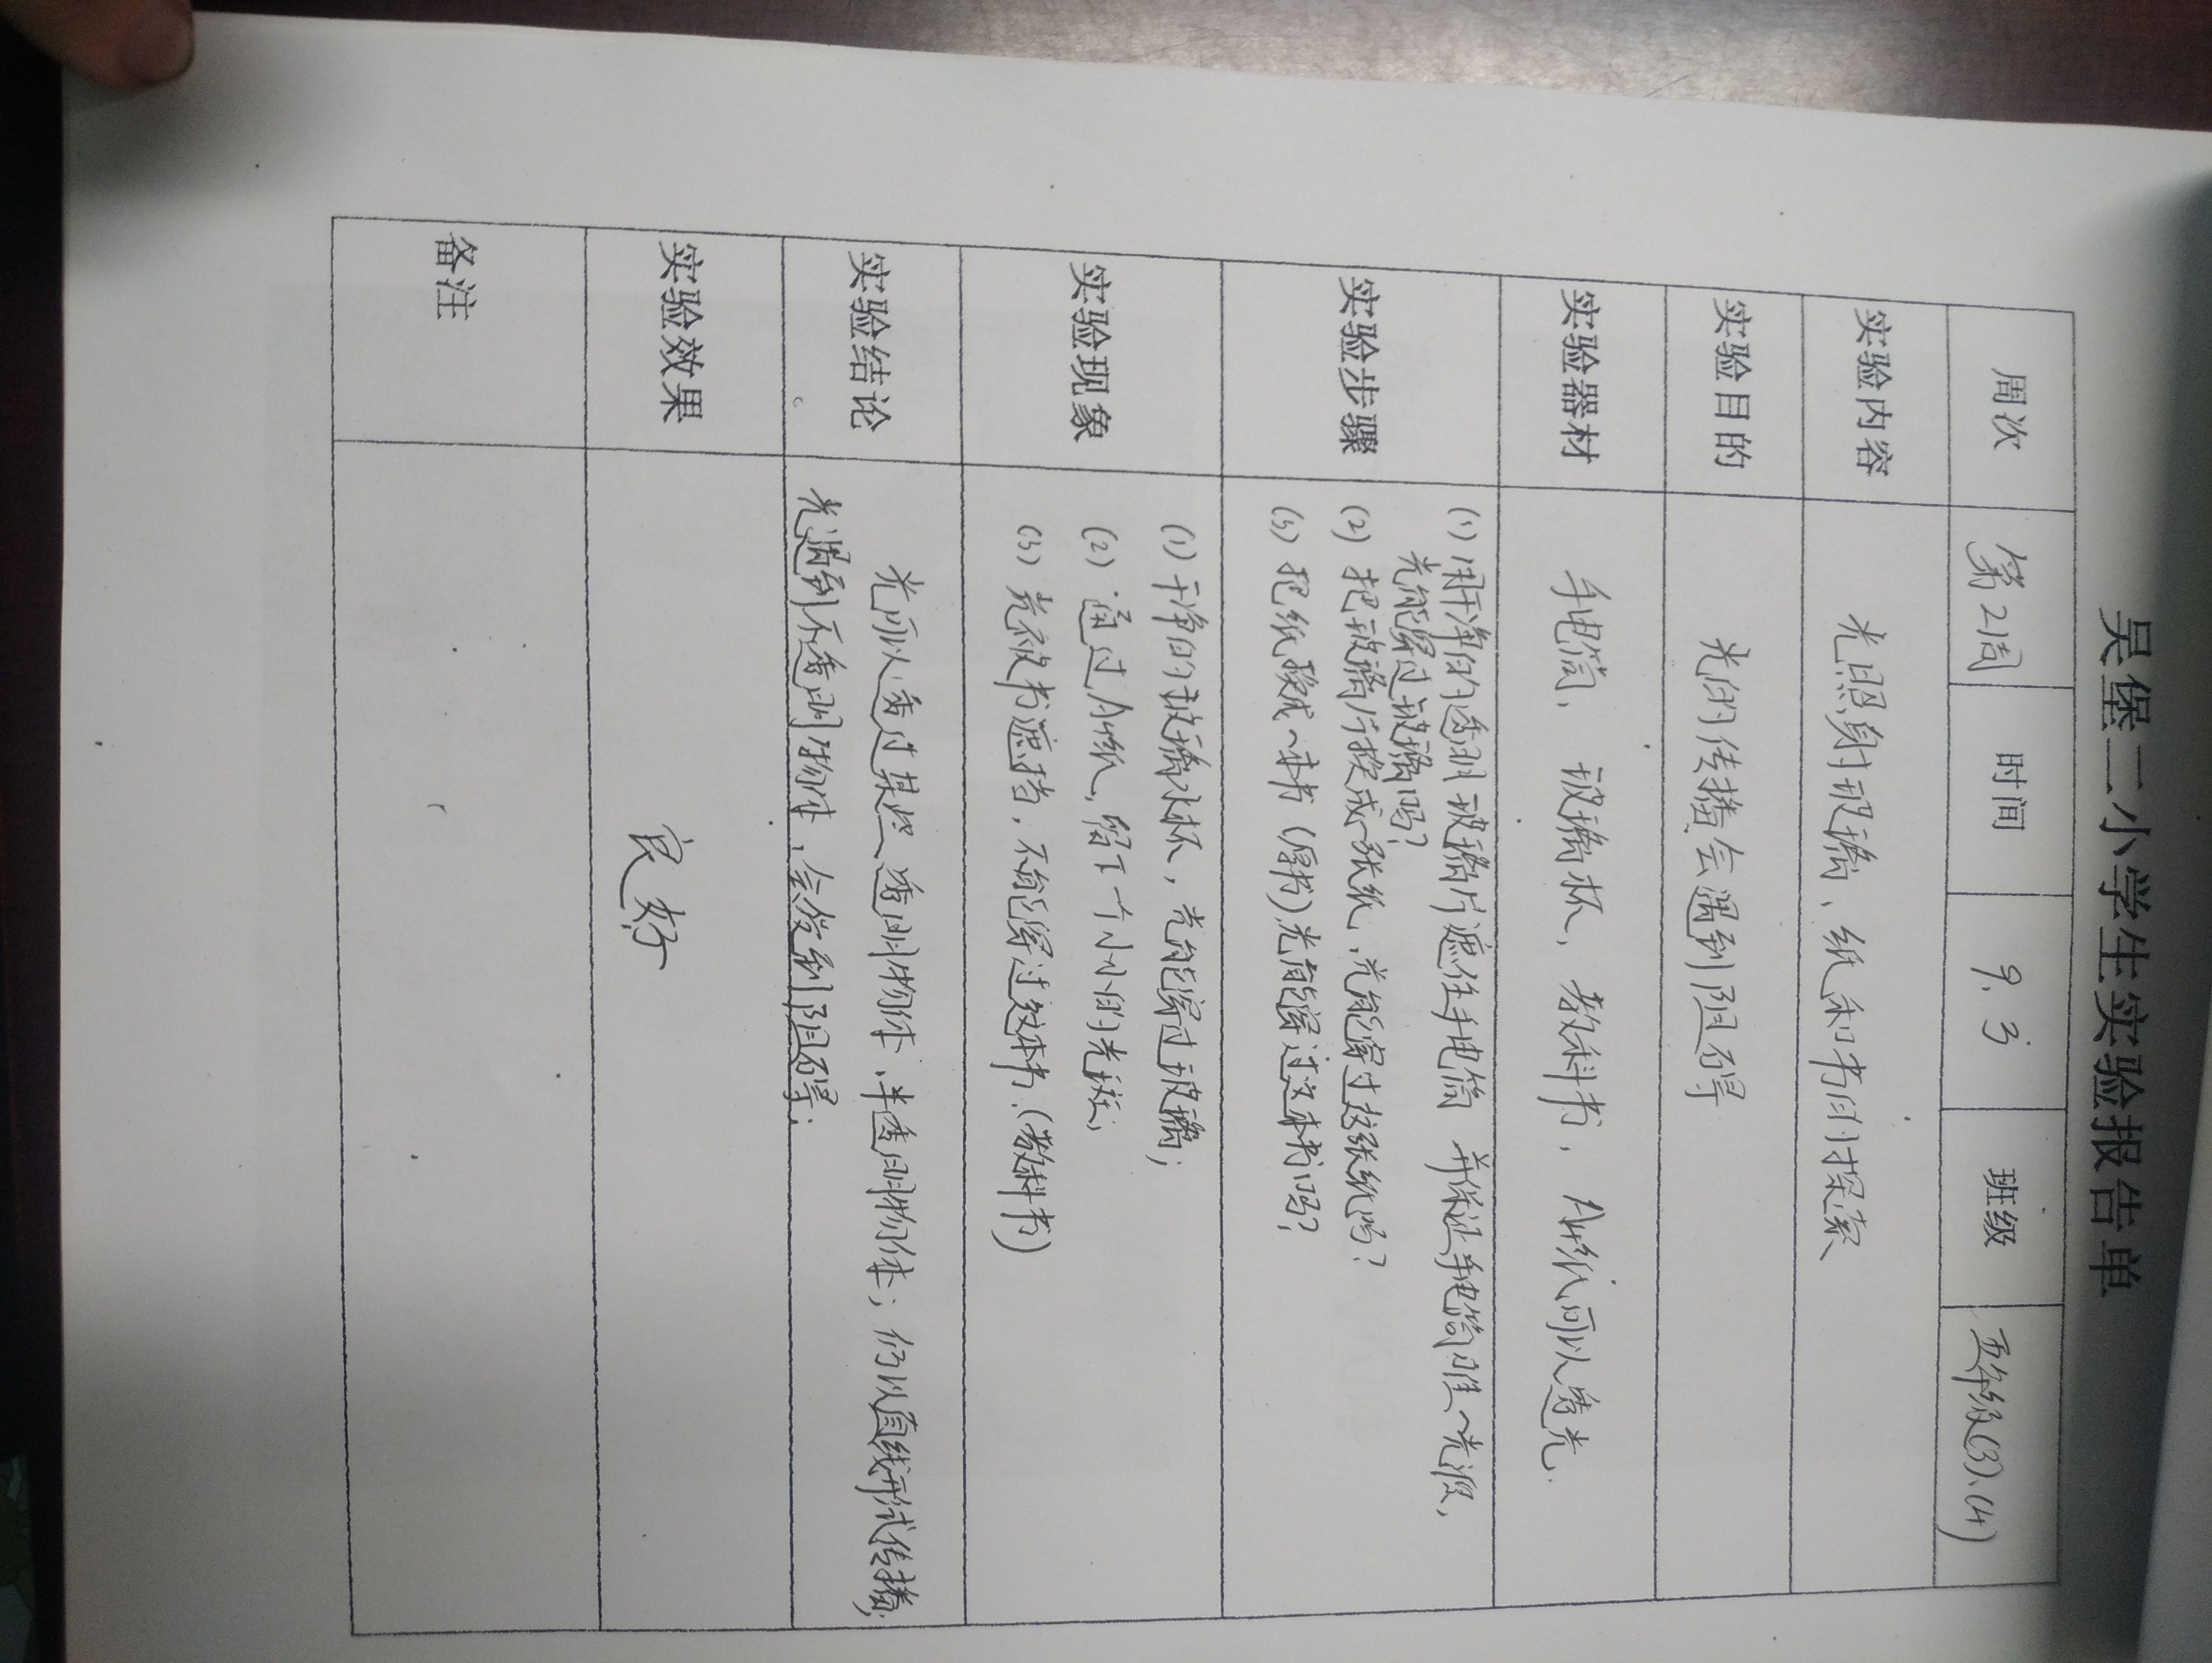 吴堡二小学生实验报告单
周次 第2周 时间 9.3 班级 五年级(3)、(4)
实验内容 光照射玻璃、纸和书的探索
实验目的 光的传播会遇到阻碍
实验器材 手电筒、玻璃杯,教科书,A4纸可以透光.
实验步骤 (1) 用干净的透明玻璃片遮住手电筒 并保证手电筒唯一光源,
光能穿过玻璃吗?
(2) 把玻璃片换成一张纸,光能穿过这张纸吗?
(3) 把纸换成一本书(厚书)光能穿过这本书吗?
实验现象 (1) 干净的玻璃水杯,光能穿过玻璃;
(2) 通过A4纸,留下一个小小的光斑;
(3) 光被书遮挡,不能穿过这本书.(教科书)
实验结论 光可以透过某些透明物体、半透明物体;仍以直线形式传播;
光遇到不透明物体,会受到阻碍;
实验效果 良好
备注